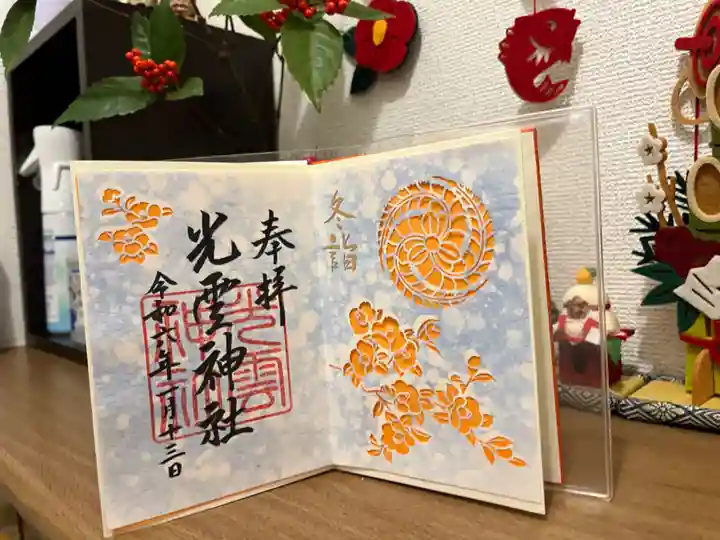 冬詣
奉拝
光雲神社
光雲
神社
令和六年一月十三日